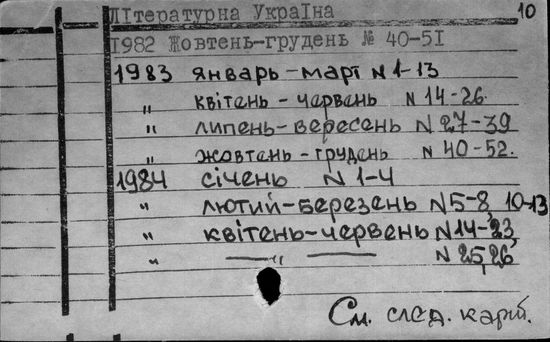 Літературна Україна 10
1982 Жовтень-грудень № 40-51
1983 январь-март N 1-13
" квітень - червень N 14-26.
" липень-вересень N 27-39
" жовтень-грудень N 40-52.
1984 січень N 1-4
" лютий-березень N 5-8, 10-13
" квітень-червень N 14-23,
" —"— N 25,26,
См. след. карт.